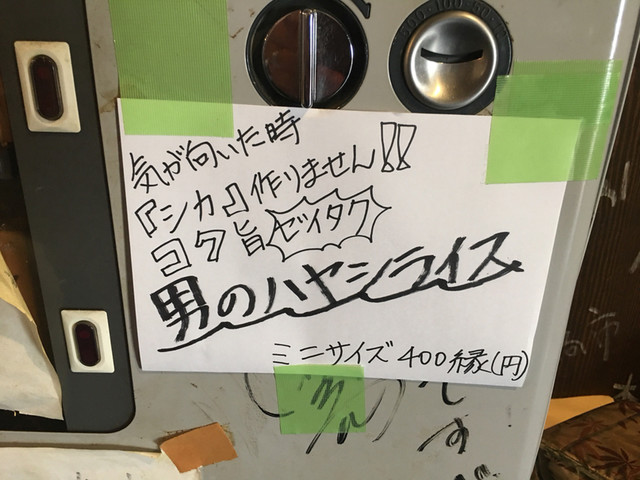 気が向いた時
『シカ』作りません!!
コク旨ゼイタク
男のハヤシライス
ミニサイズ 400縁(円)
です